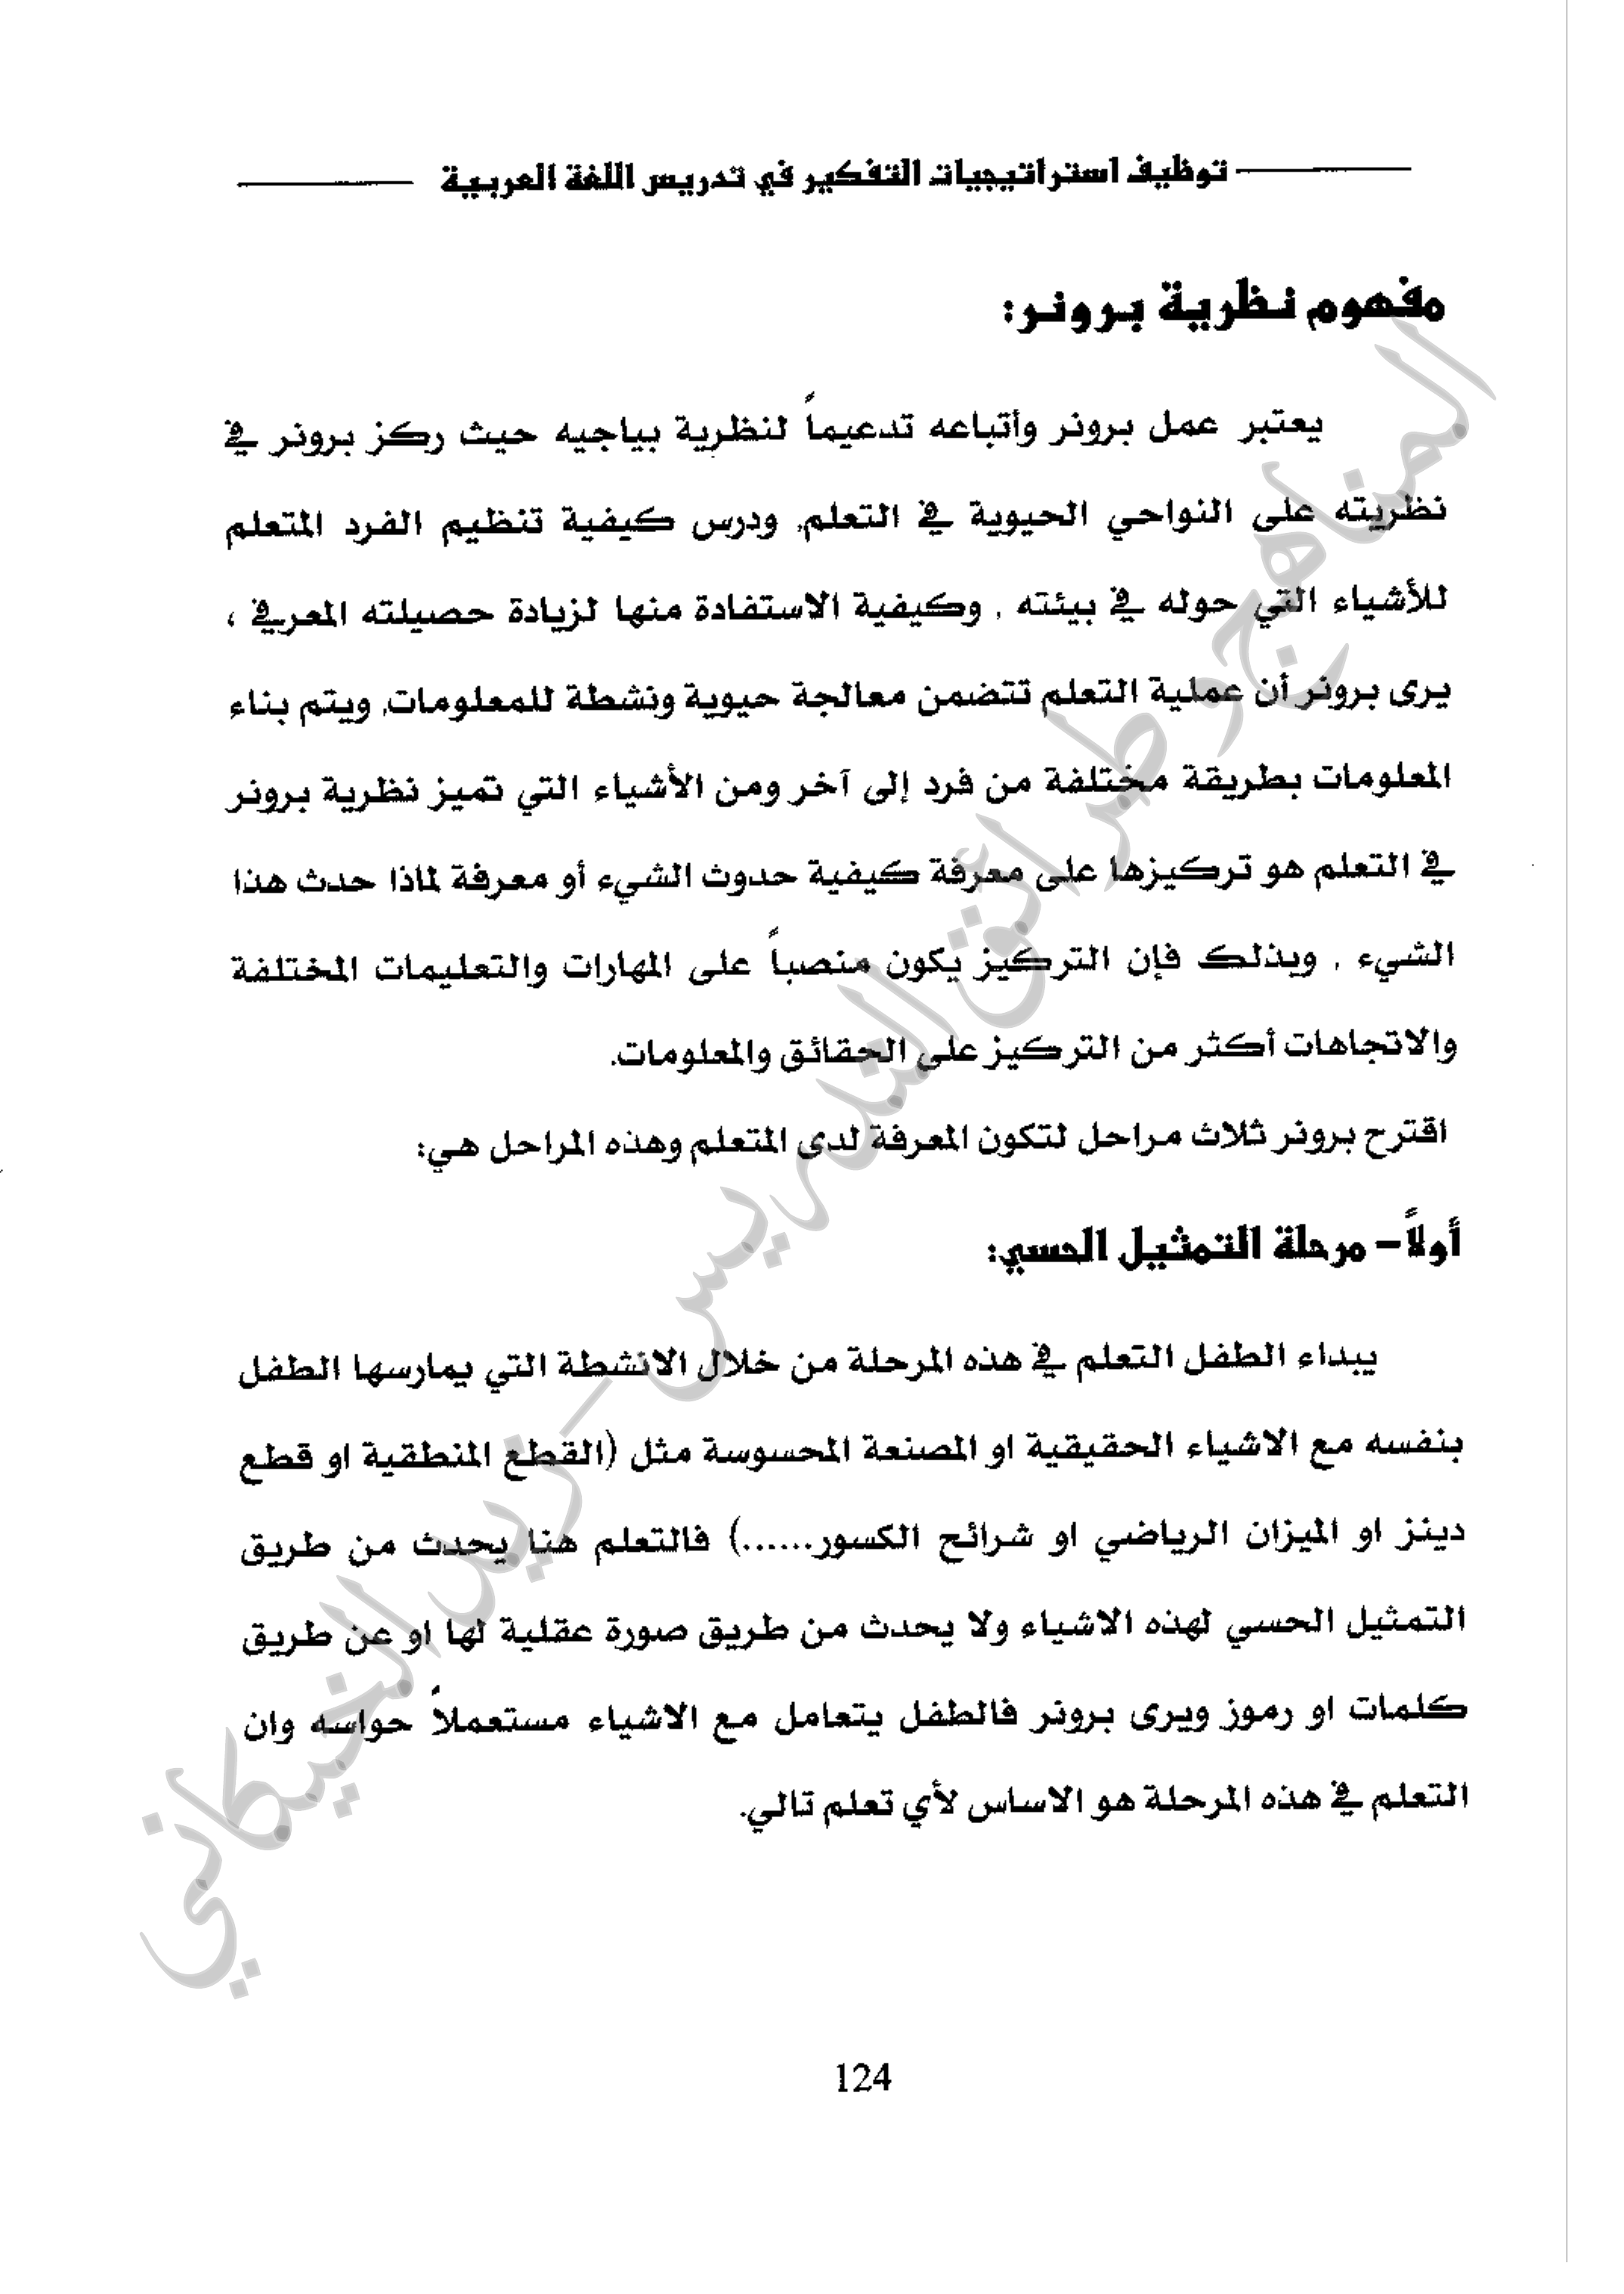 توظيف استراتيجيات التفكير في تدريس اللغة العربية
مفهوم نظرية برونر:
يعتبر عمل برونر وأتباعه تدعيماً لنظرية بياجيه حيث ركز برونر في
نظريته على النواحي الحيوية في التعلم, ودرس كيفية تنظيم الفرد المتعلم
للأشياء التي حوله في بيئته , وكيفية الاستفادة منها لزيادة حصيلته المعرفي ،
يرى برونر أن عملية التعلم تتضمن معالجة حيوية ونشطة للمعلومات, ويتم بناء
المعلومات بطريقة مختلفة من فرد إلى آخر ومن الأشياء التي تميز نظرية برونر
في التعلم هو تركيزها على معرفة كيفية حدوث الشيء أو معرفة لماذا حدث هذا
الشيء , وبذلك فإن التركيز يكون منصباً على المهارات والتعليمات المختلفة
والاتجاهات أكثر من التركيز على الحقائق والمعلومات.
اقترح برونر ثلاث مراحل لتكون المعرفة لدى المتعلم وهذه المراحل هي:
أولاً – مرحلة التمثيل الحسي:
يبداء الطفل التعلم في هذه المرحلة من خلال الانشطة التي يمارسها الطفل
بنفسه مع الاشياء الحقيقية او المصنعة المحسوسة مثل (القطع المنطقية او قطع
دينز او الميزان الرياضي او شرائح الكسور......) فالتعلم هنا يحدث من طريق
التمثيل الحسي لهذه الاشياء ولا يحدث من طريق صورة عقلية لها او عن طريق
كلمات او رموز ويرى برونر فالطفل يتعامل مع الاشياء مستعملاً حواسه وان
التعلم في هذه المرحلة هو الاساس لأي تعلم تالي.
المناهج وطرائق التدريس - زيد الخيكاني
124